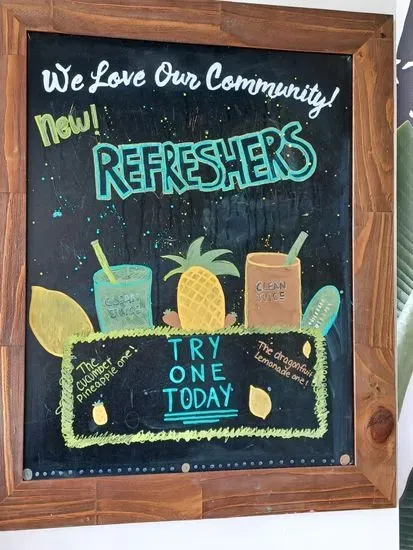 We Love Our Community!
New!
REFRESHERS
CLEAN
JUICE
CLEAN
JUICE
The
cucumber
pineapple one!
TRY
ONE
TODAY
The dragonfruit
Lemonade one!